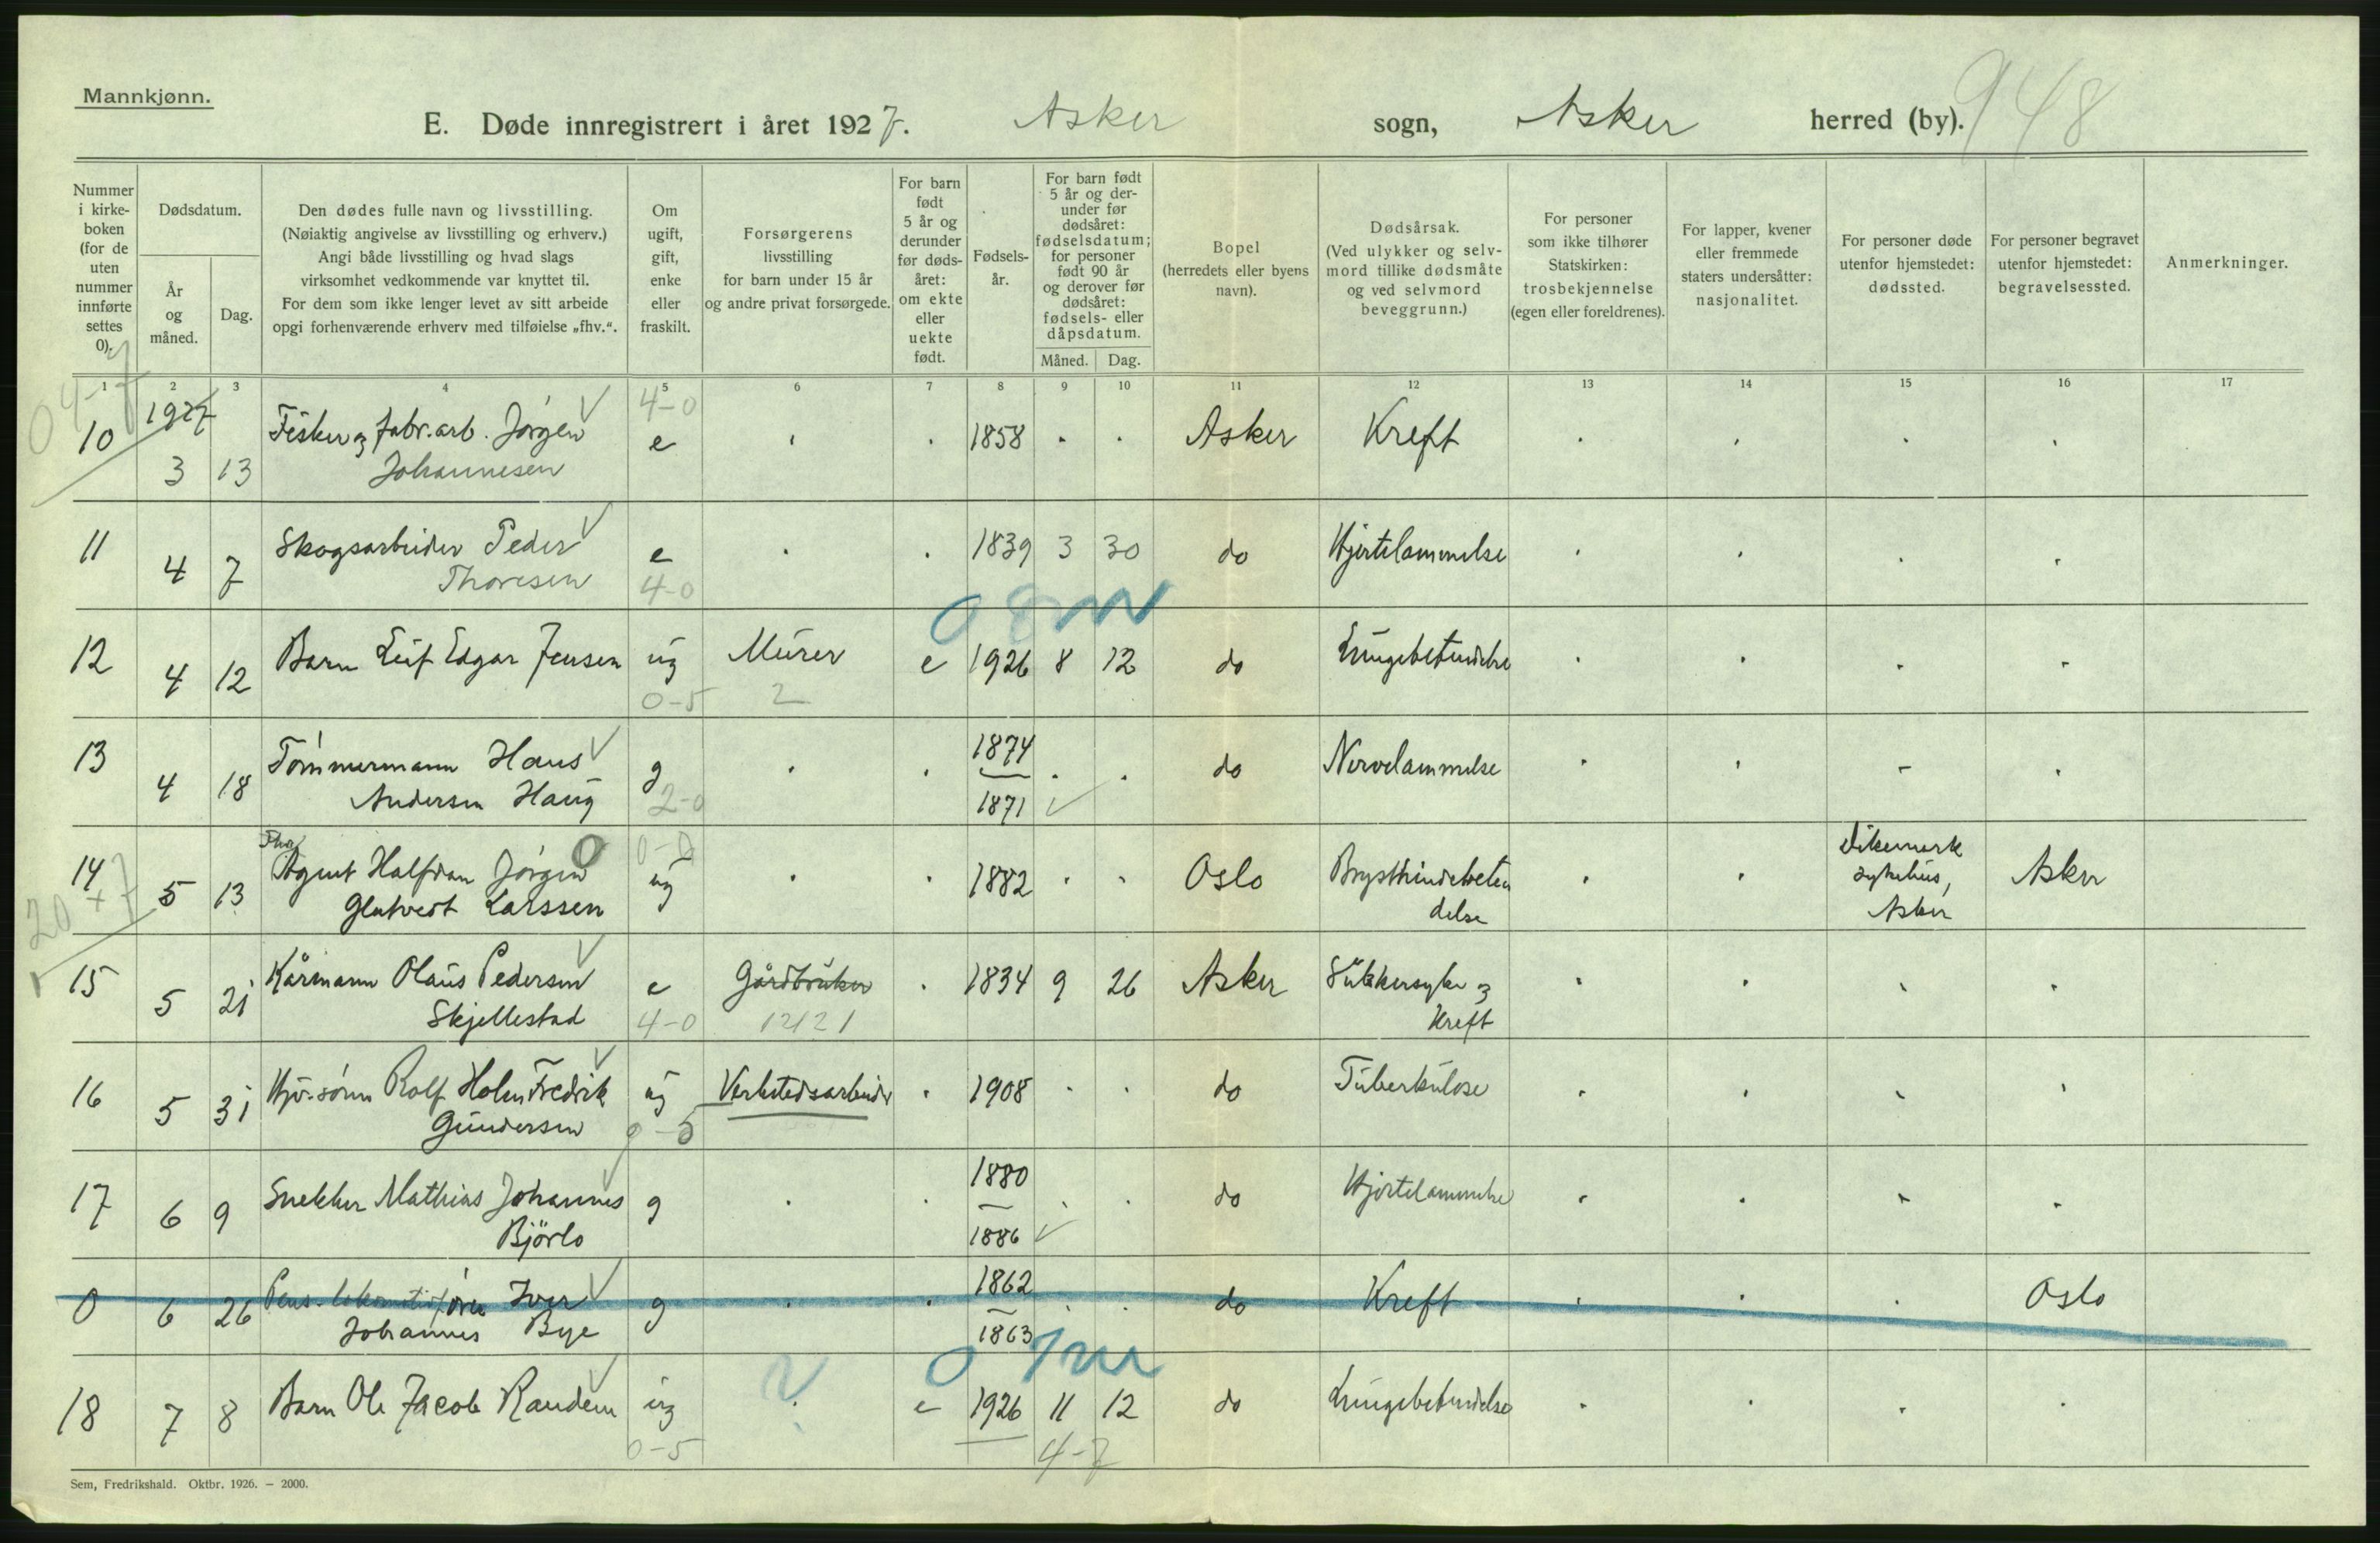 Mannkjønn.
948
E. Døde innregistrert i året 1927. Asker sogn, Asker herred (by).
Nummer i kirke- boken (for de uten nummer innførte settes 0).
Dødsdatum.
År og måned.
Dag.
Den dødes fulle navn og livsstilling.
(Nøiaktig angivelse av livsstilling og erhverv.)
Angi både livsstilling og hvad slags
virksomhet vedkommende var knyttet til.
For dem som ikke lenger levet av sitt arbeide
opgi forhenværende erhverv med tilføielse „fhv.“.
Om ugift, gift, enke eller fraskilt.
Forsørgerens
livsstilling
for barn under 15 år
og andre privat forsørgede.
For barn født 5 år og derunder før døds- året: om ekte eller uekte født.
Fødsels- år.
For barn født 5 år og der- under før dødsåret: fødselsdatum; for personer født 90 år og derover før dødsåret: fødsels- eller dåpsdatum.
Måned. Dag.
Bopel
(herredets eller byens
navn).
Dødsårsak.
(Ved ulykker og selv-
mord tillike dødsmåte
og ved selvmord
beveggrunn.)
For personer
som ikke tilhører
Statskirken:
trosbekjennelse
(egen eller foreldrenes).
For lapper, kvener
eller fremmede
staters undersåtter:
nasjonalitet.
For personer døde
utenfor hjemstedet:
dødssted.
For personer begravet
utenfor hjemstedet:
begravelsessted.
Anmerkninger.
1 2 3 4 5 6 7 8 9 10 11 12 13 14 15 16 17
04-7
1927 4-0
10 Fisker og fabr.arb. Jörgen e 1858 Asker Kreft
3 13 Johannesen
11 4 7 Skogsarbeider Peder e 1839 3 30 do Hjertelammelse
Thoresen 4-0
12 4 12 Barn Leif Edgar Jensen ug Murer e 1926 8 12 do Lungebetendelse
0-5 2
13 4 18 Tömmermann Hans g 1874 do Nervelammelse
Andersen Haug 2-0 1871
Fhv. 0-0
14 5 13 Agent Halfdan Jörgen ug 1882 Oslo Brysthindebeten Dikemark sykehus, Asker Asker
Glatvedt Larssen delse
20 + 7
15 5 21 Kårmann Olaus Pedersen e Gårdbruker 1834 9 26 Asker Sukkersyke og
Skjellestad 4-0 12121 Kreft
16 5 31 Hjv.sönn Rolf Holm Fredrik ug Verkstedsarbeider 1908 do Tuberkulose
Gundersen 0-5
17 6 9 Snekker Mathias Johannes g 1880 do Hjertelammelse
Björlo 1886
0 6 26 Pens. lokomotivförer Iver g 1862 do Kreft Oslo
Johannes Bye 1863
18 7 8 Barn Ole Jacob Randem ug ? e 1926 11 12 do Lungebetendelse
0-5 4-7
Sem, Fredrikshald. Oktbr. 1926. – 2000.